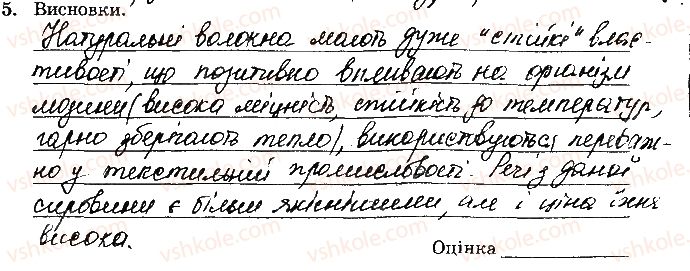 5. Висновки.
Натуральні волокна мають дуже "стійкі" влас-
тивості, що позитивно впливають на організм
людини (висока міцність, стійкість до температур,
гарно зберігають тепло), використовуються переваж-
но у текстильній промисловості. Речі з даної
сировини є більш якіснішими, але і ціна їхня
висока.
Оцінка